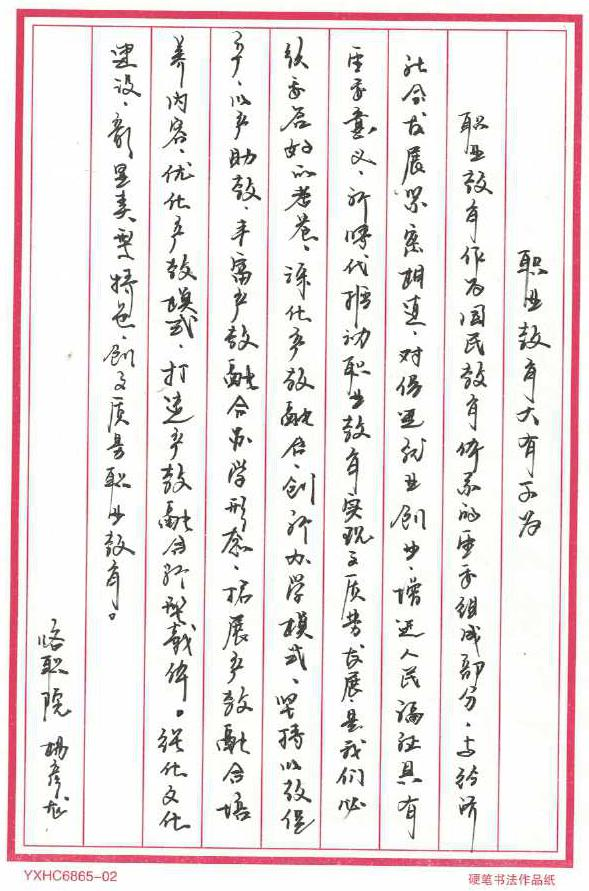 职业教育大有可为
职业教育作为国民教育体系的重要组成部分，与经济
社会发展紧密相连，对促进就业创业、增进人民福祉具有
重要意义，新时代推动职业教育实现高质量发展，是我们必
须要答好的考卷，深化产教融合，创新办学模式，坚持以教促
产，以产助教，丰富产教融合办学形态，拓展产教融合培
养内容，优化产教模式，打造产教融合新型载体。强化文化
建设，彰显类型特色，创高质量职业教育。
职院 杨彦龙
YXHC6865-02
硬笔书法作品纸